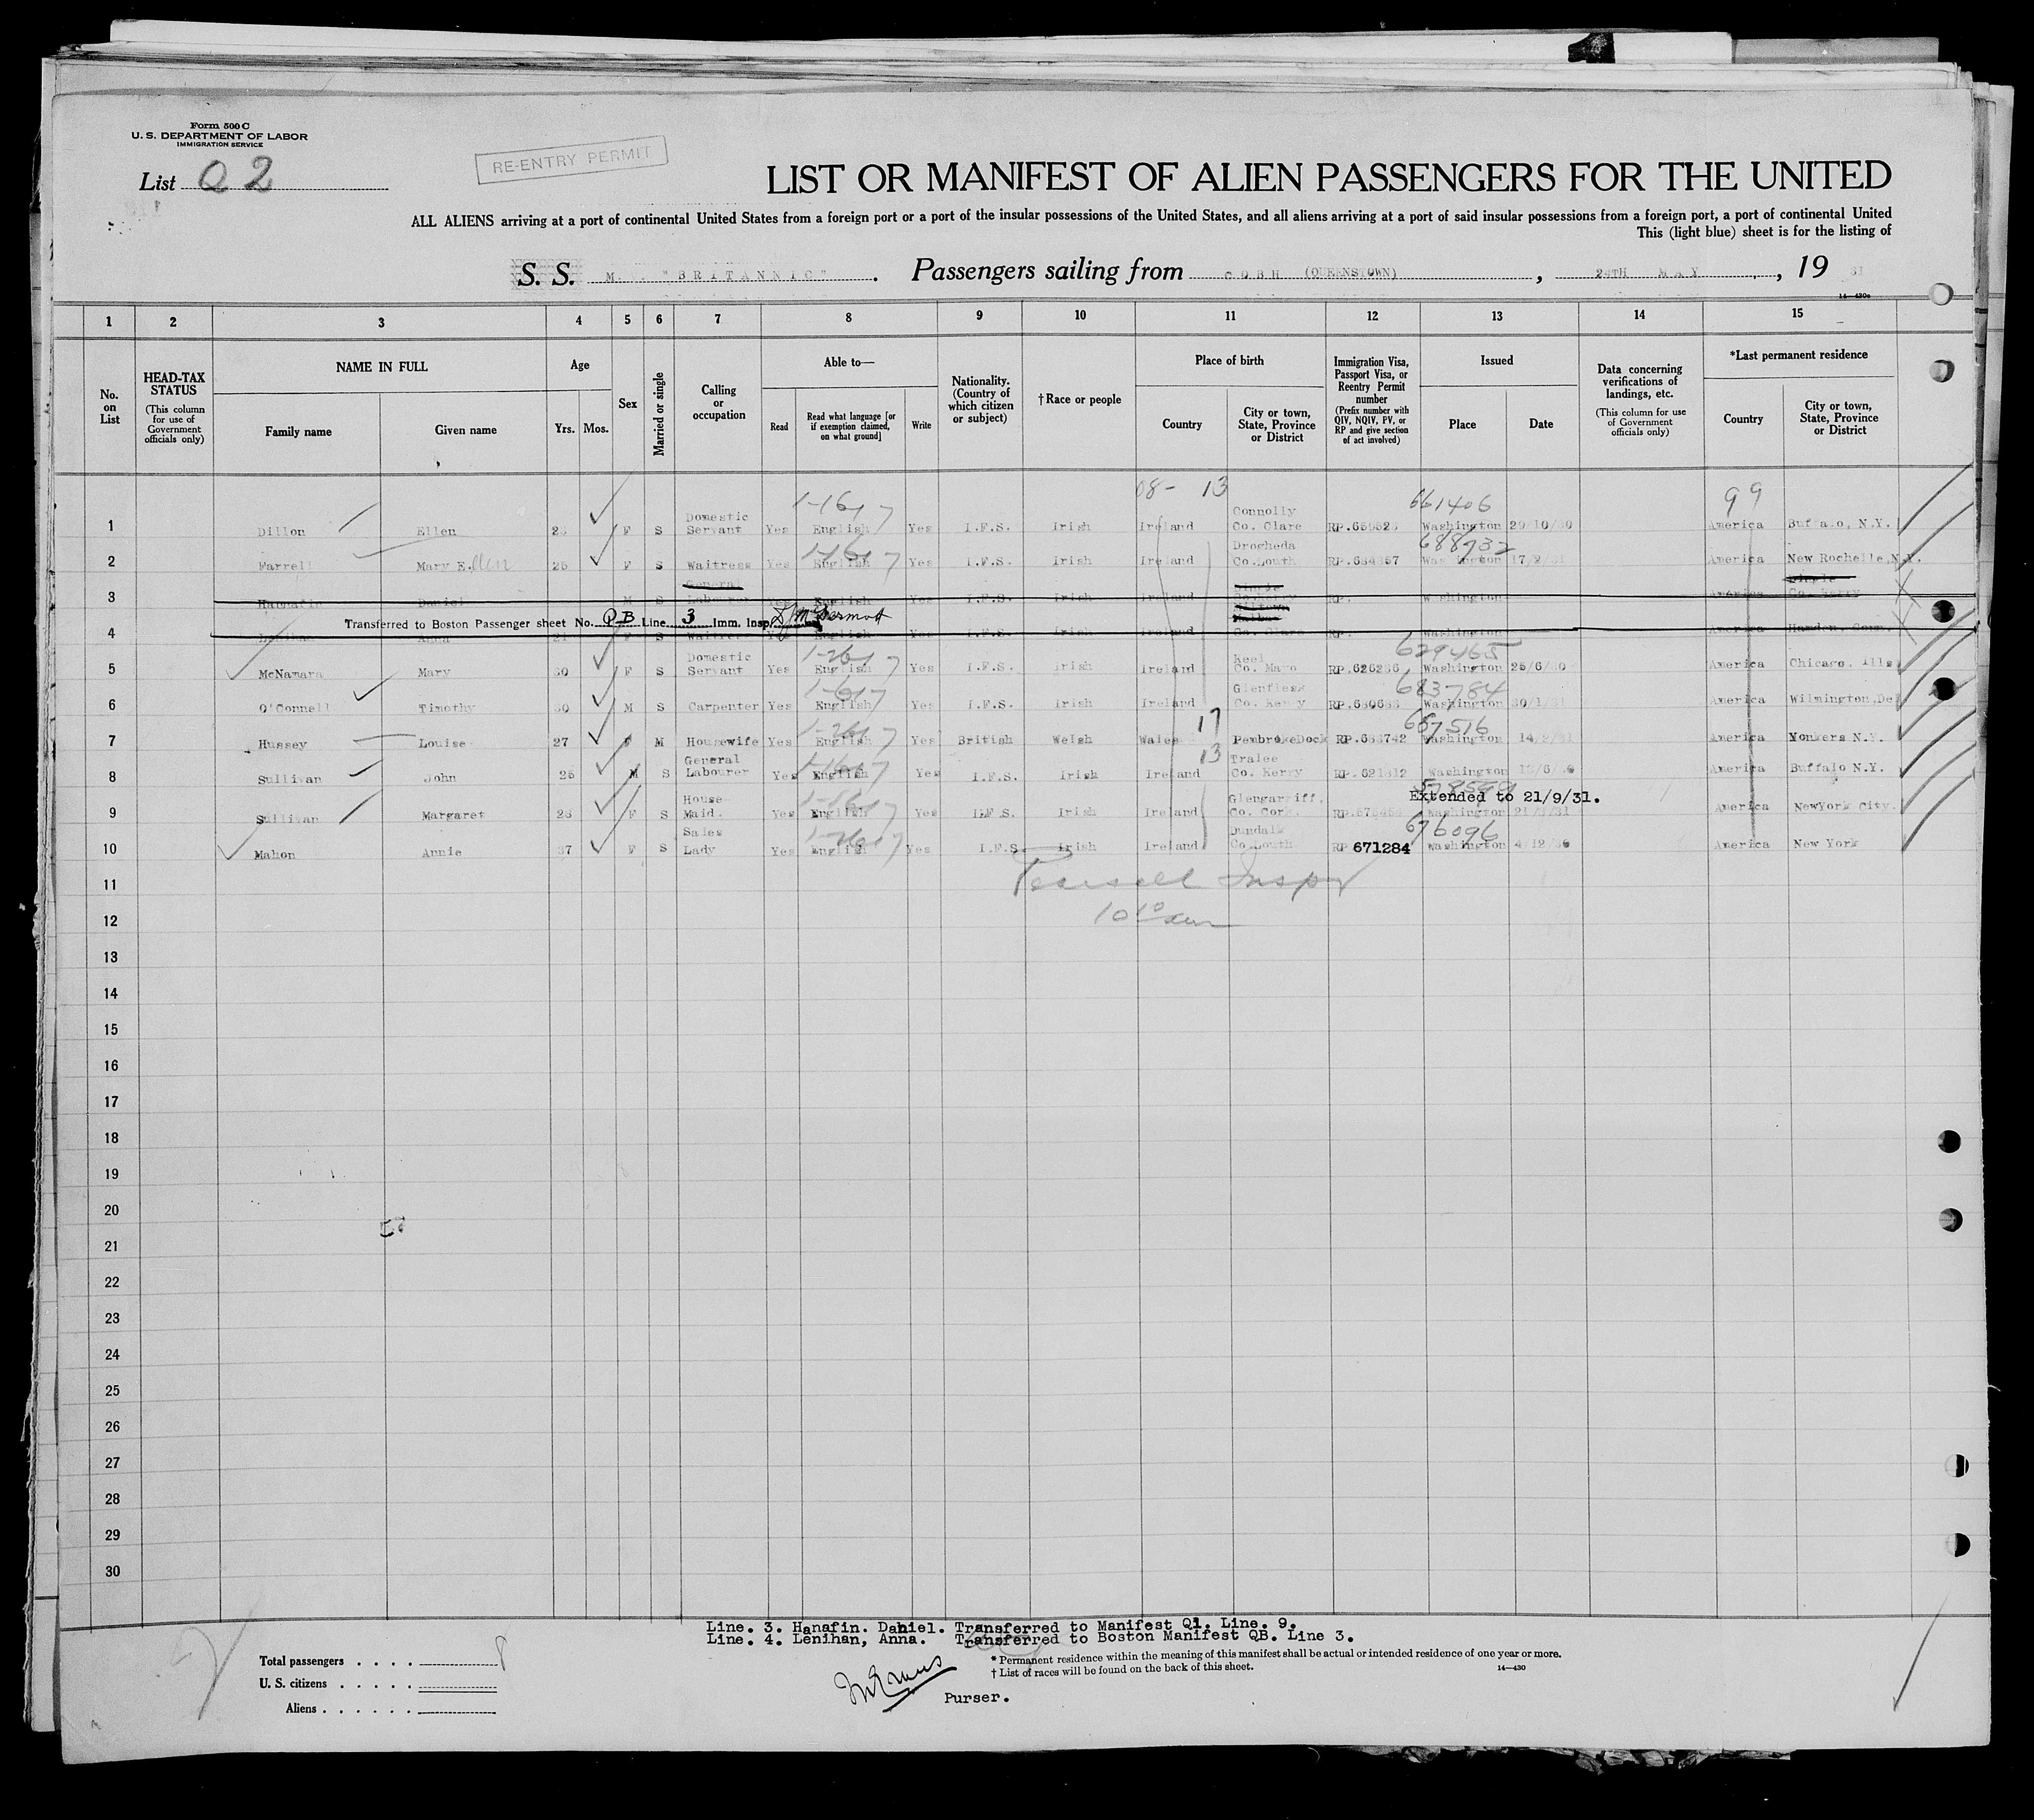 Form 500 C
U. S. DEPARTMENT OF LABOR
IMMIGRATION SERVICE
List Q 2
RE-ENTRY PERMIT
LIST OR MANIFEST OF ALIEN PASSENGERS FOR THE UNITED
ALL ALIENS arriving at a port of continental United States from a foreign port or a port of the insular possessions of the United States, and all aliens arriving at a port of said insular possessions from a foreign port, a port of continental United
This (light blue) sheet is for the listing of
S. S. M. "BRITANNIC". Passengers sailing from COBH (QUEENSTOWN), MAY, 19 31
14—430a
1 2 3 4 5 6 7 8 9 10 11 12 13 14 15
No. on List
HEAD-TAX STATUS (This column for use of Government officials only)
NAME IN FULL Family name Given name
Age Yrs. Mos.
Sex
Married or single
Calling or occupation
Able to— Read Read what language [or if exemption claimed, on what ground] Write
Nationality. (Country of which citizen or subject)
†Race or people
Place of birth Country City or town, State, Province or District
Immigration Visa, Passport Visa, or Reentry Permit number (Prefix number with QIV, NQIV, PV, or RP and give section of act involved)
Issued Place Date
Data concerning verifications of landings, etc. (This column for use of Government officials only)
*Last permanent residence Country City or town, State, Province or District
08- 13 661406 99
1 Dillon Ellen F S Domestic Servant Yes English Yes I.F.S. Irish Ireland Connolly Co. Clare Washington America Buffalo, N.Y.
688932
2 Farrell Mary E.llen 25 F S Waitress Yes English Yes I.F.S. Irish Ireland Drogheda Co.Louth Washington 17/2/31 America New Rochelle,N.Y.
3 Hanafin Daniel M S General Labourer Yes English Yes I.F.S. Irish Ireland RP. Washington America Co. Kerry
Transferred to Boston Passenger sheet No. QB Line 3 Imm. Insp. McDermod
4 Lenihan Anna 21 F S Waitress Yes English Yes I.F.S. Irish Ireland Co. Clare RP. Washington America Hamden, Conn.
629465
5 McNamara Mary 30 F S Domestic Servant Yes English Yes I.F.S. Irish Ireland Keel Co. Mayo RP.626236 Washington 25/6/30 America Chicago. Ills
683784
6 O'Connell Timothy 30 M S Carpenter Yes English Yes I.F.S. Irish Ireland Glenflesk Co. Kerry Washington 30/1/31 America Wilmington,Del
17 667516
7 Hussey Louise 27 F M Housewife Yes English Yes British Welsh Wales PembrokeDock Washington America Yonkers N.Y.
13
8 Sullivan John 25 M S General Labourer Yes English Yes I.F.S. Irish Ireland Tralee Co. Kerry RP.621312 Washington America Buffalo N.Y.
Extended to 21/9/31.
9 Sullivan Margaret F S House Maid. Yes English Yes I.F.S. Irish Ireland Glengarriff, Co. Cork. Washington America NewYork City.
676096
10 Mahon Annie 37 F S Sales Lady Yes English Yes I.F.S. Irish Ireland Dundalk Co.Louth RP 671284 Washington 4/12/30 America New York
11 Insp
12
13
14
15
16
17
18
19
20
21
22
23
24
25
26
27
28
29
30
Line. 3. Hanafin. Daniel. Transferred to Manifest Q1. Line. 9.
Line. 4. Lenihan, Anna. Transferred to Boston Manifest QB. Line 3.
Total passengers . . . . 8
U. S. citizens . . . . .
Aliens . . . . . .
* Permanent residence within the meaning of this manifest shall be actual or intended residence of one year or more.
† List of races will be found on the back of this sheet.
14—430
Purser.